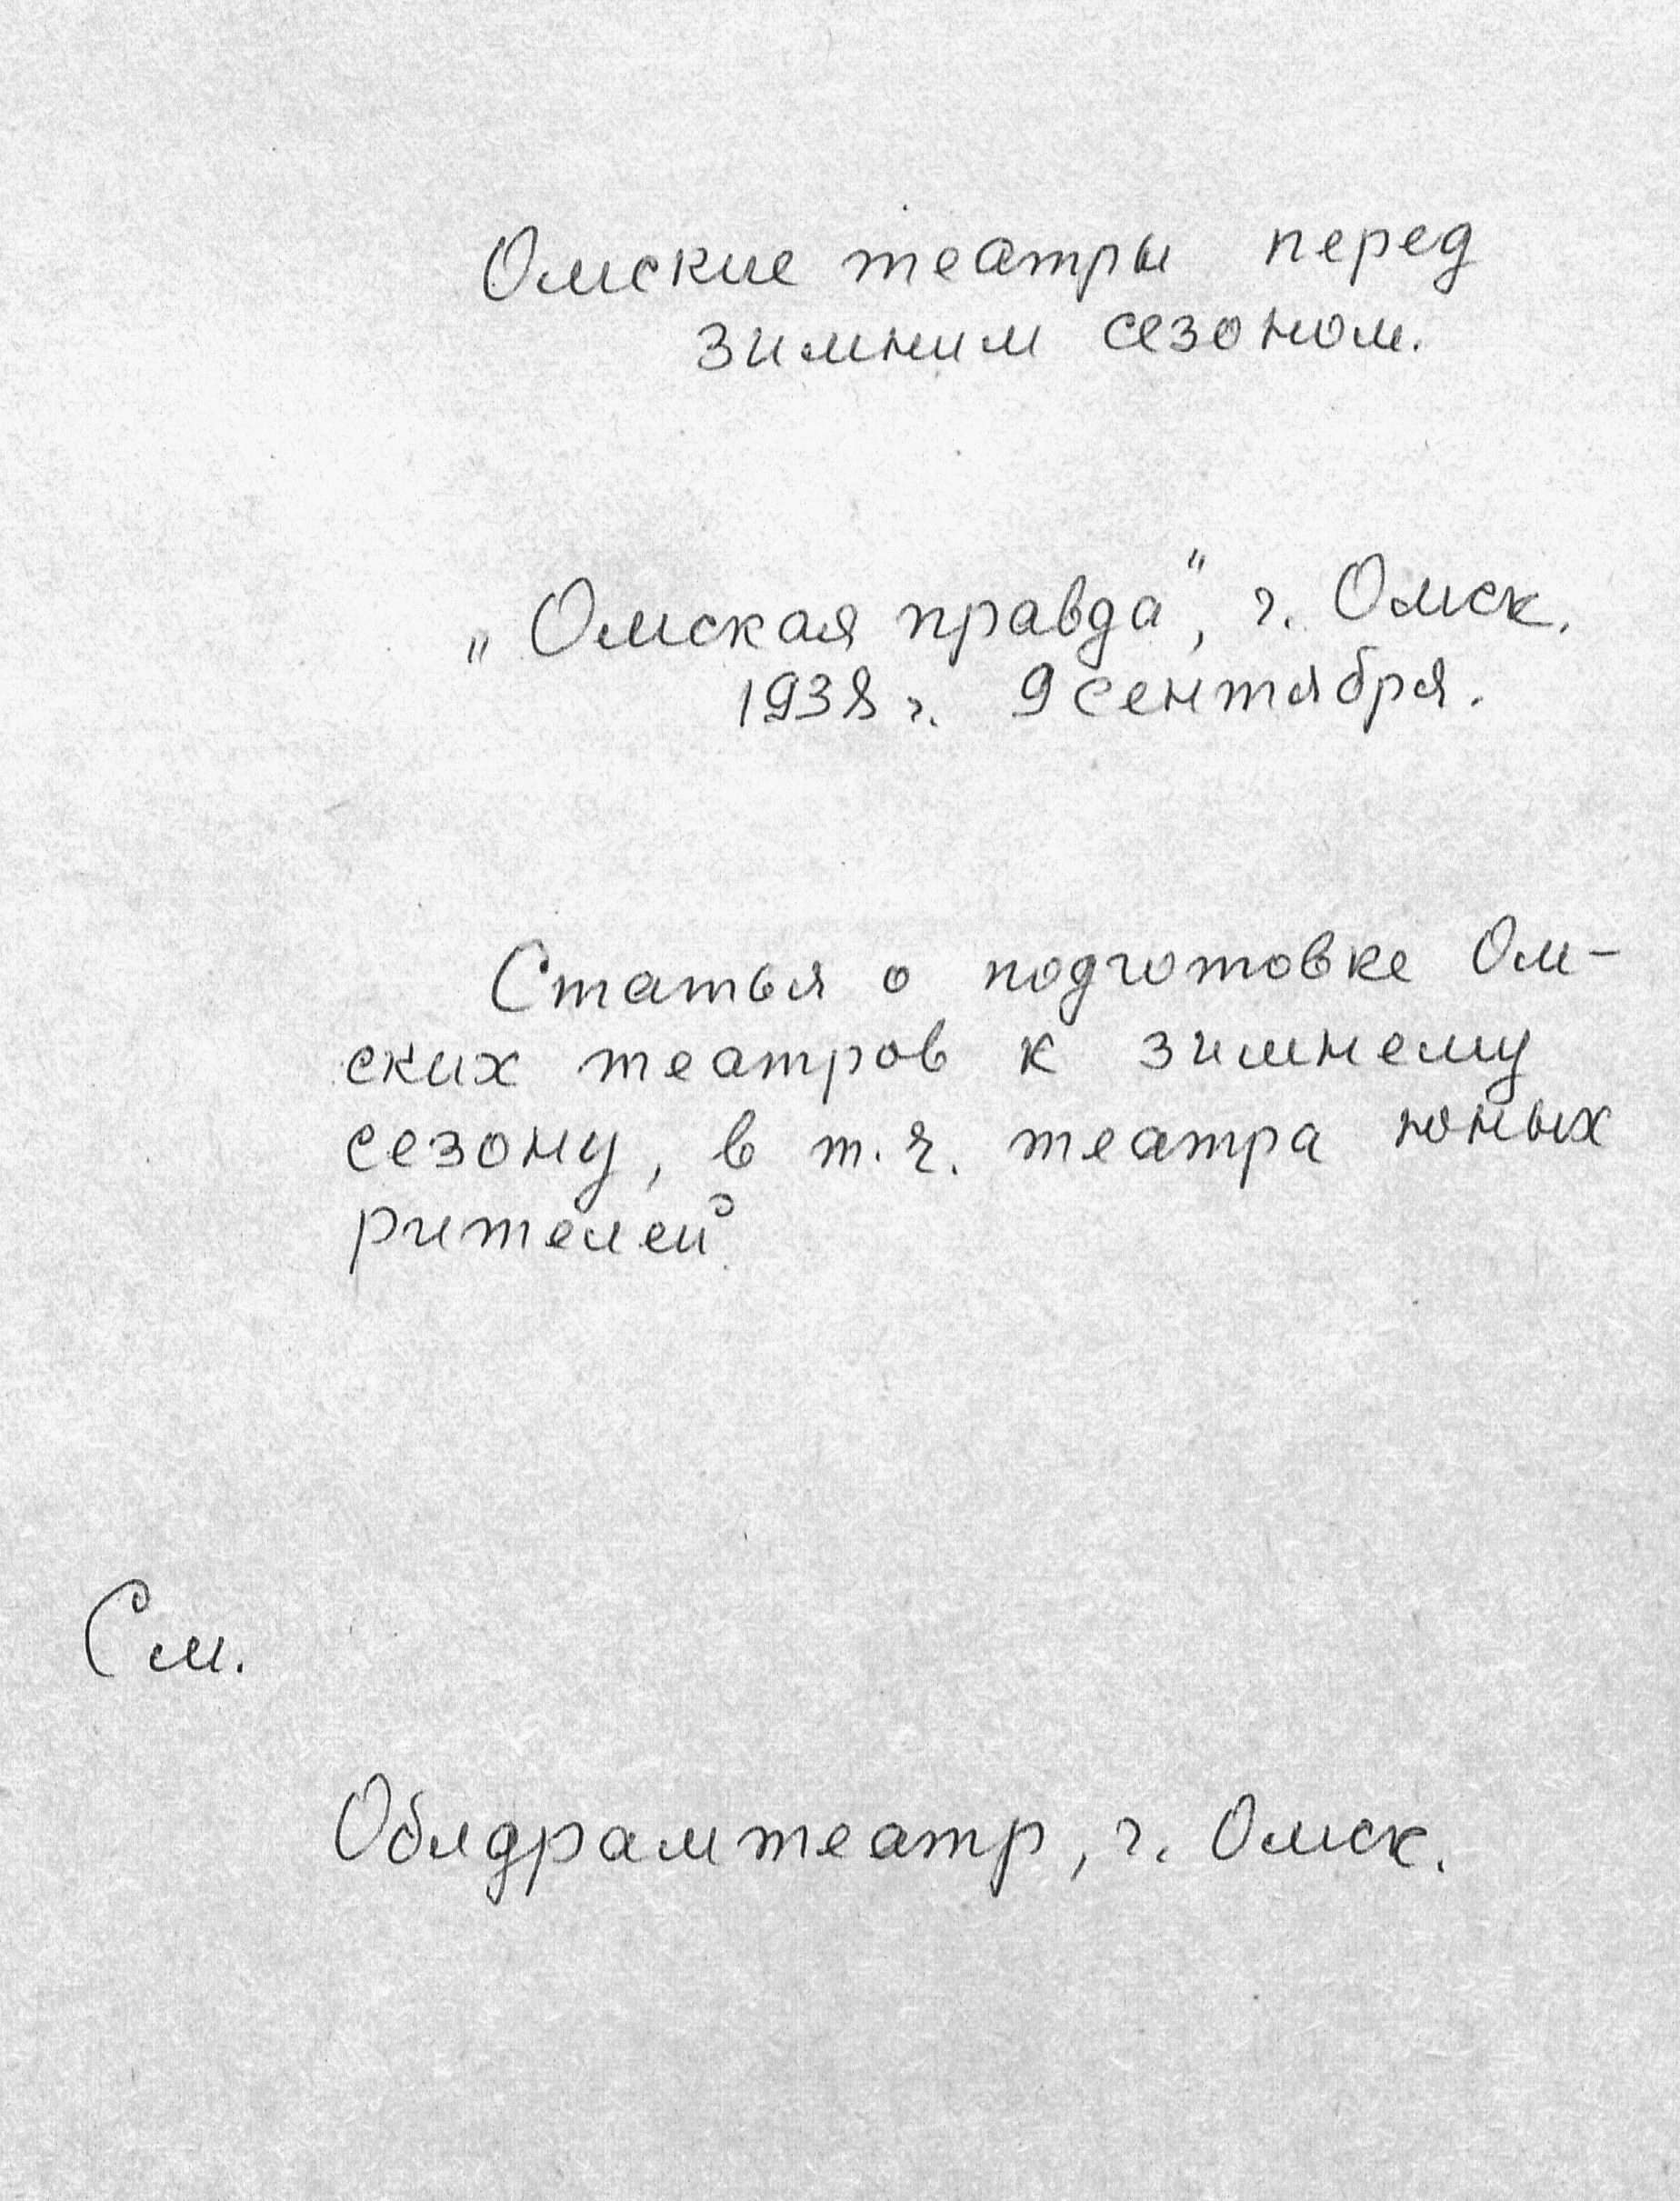 Омские театры перед
зимним сезоном.
„Омская правда", г. Омск.
1938 г. 9 сентября.
Статья о подготовке Ом-
ских театров к зимнему
сезону, в т.ч. театра юных
рителей
См.
Облдрамтеатр, г. Омск.